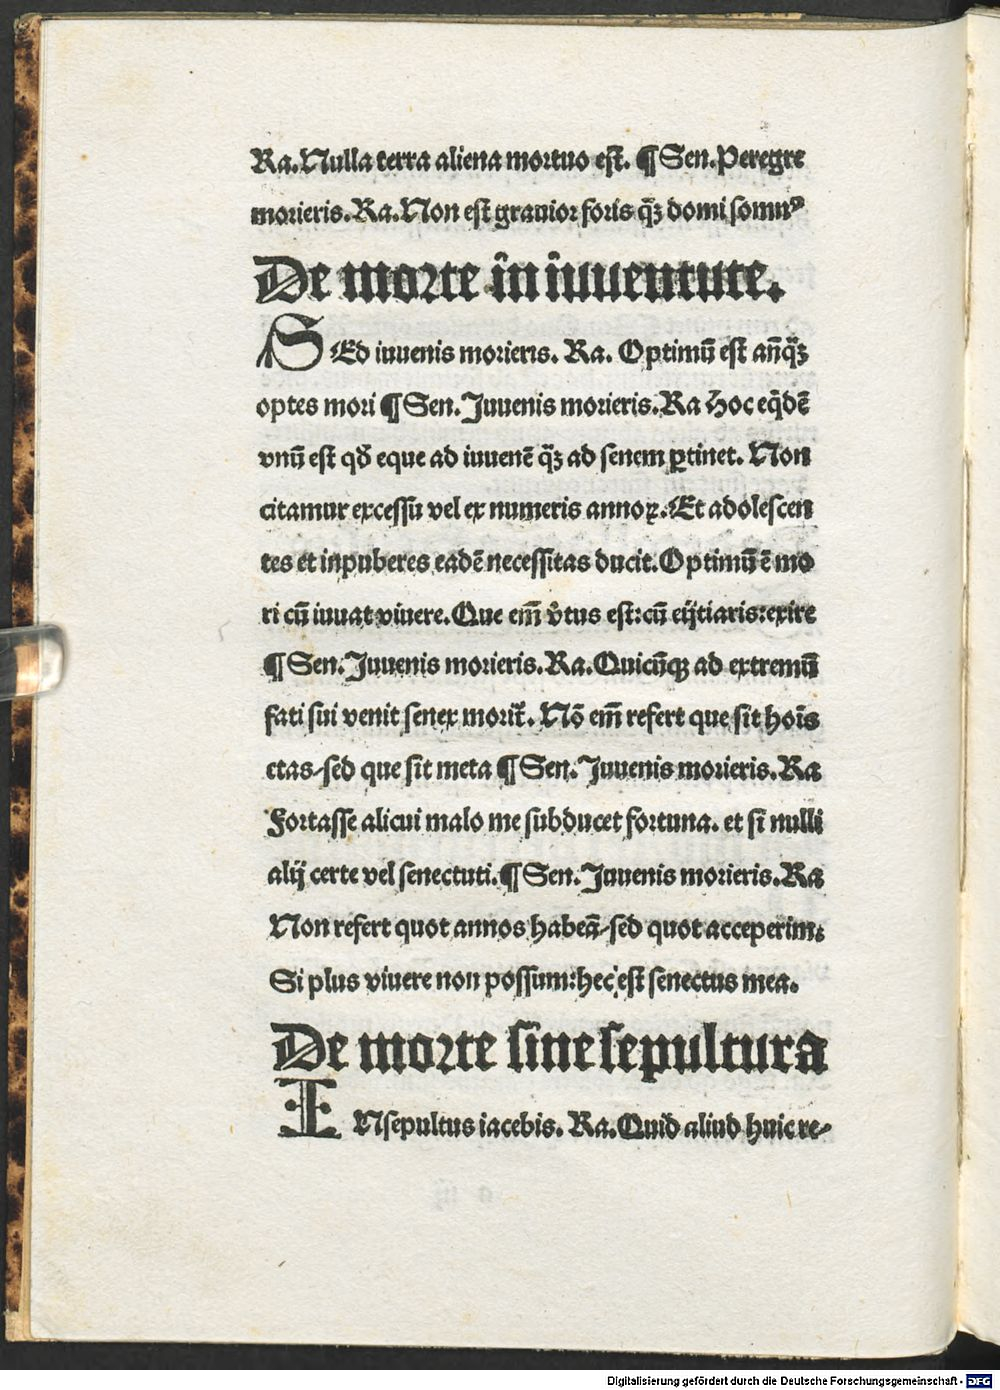 Ra. Nulla terra aliena mortuo est. ¶ Sen. Peregre
morieris. Ra. Non est grauior foris q̄ꝫ domi somnꝰ
De morte in iuuentute.
SEd iuuenis morieris. Ra. Optimū est an̄q̄ꝫ
optes mori ¶ Sen. Iuuenis morieris. Ra Hoc eq̇dē
vnū est qđ eque ad iuuenē q̄ꝫ ad senem ꝑtinet. Non
citamur excessu vel ex numeris annoꝝ. Et adolescen
tes et inpuberes eadē necessitas ducit. Optimū ē mo
ri cū iuuat viuere. Que em̄ v̓tus est: cū eijtiaris: exire
¶ Sen. Iuuenis morieris. Ra. Quicūqꝫ ad extremū
fati sui venit senex morit᷑. Nō em̄ refert que sit hoīs
etas/ sed que sit meta ¶ Sen. Iuuenis morieris. Ra
Fortasse alicui malo me subducet fortuna. et si nulli
alij certe vel senectuti. ¶ Sen. Iuuenis morieris. Ra
Non refert quot annos habeā/ sed quot acceperim.
Si plus viuere non possum: hec est senectus mea.
De morte sine sepultura
INsepultus iacebis. Ra. Quid aliud huic re/
Digitalisierung gefördert durch die Deutsche Forschungsgemeinschaft - DFG